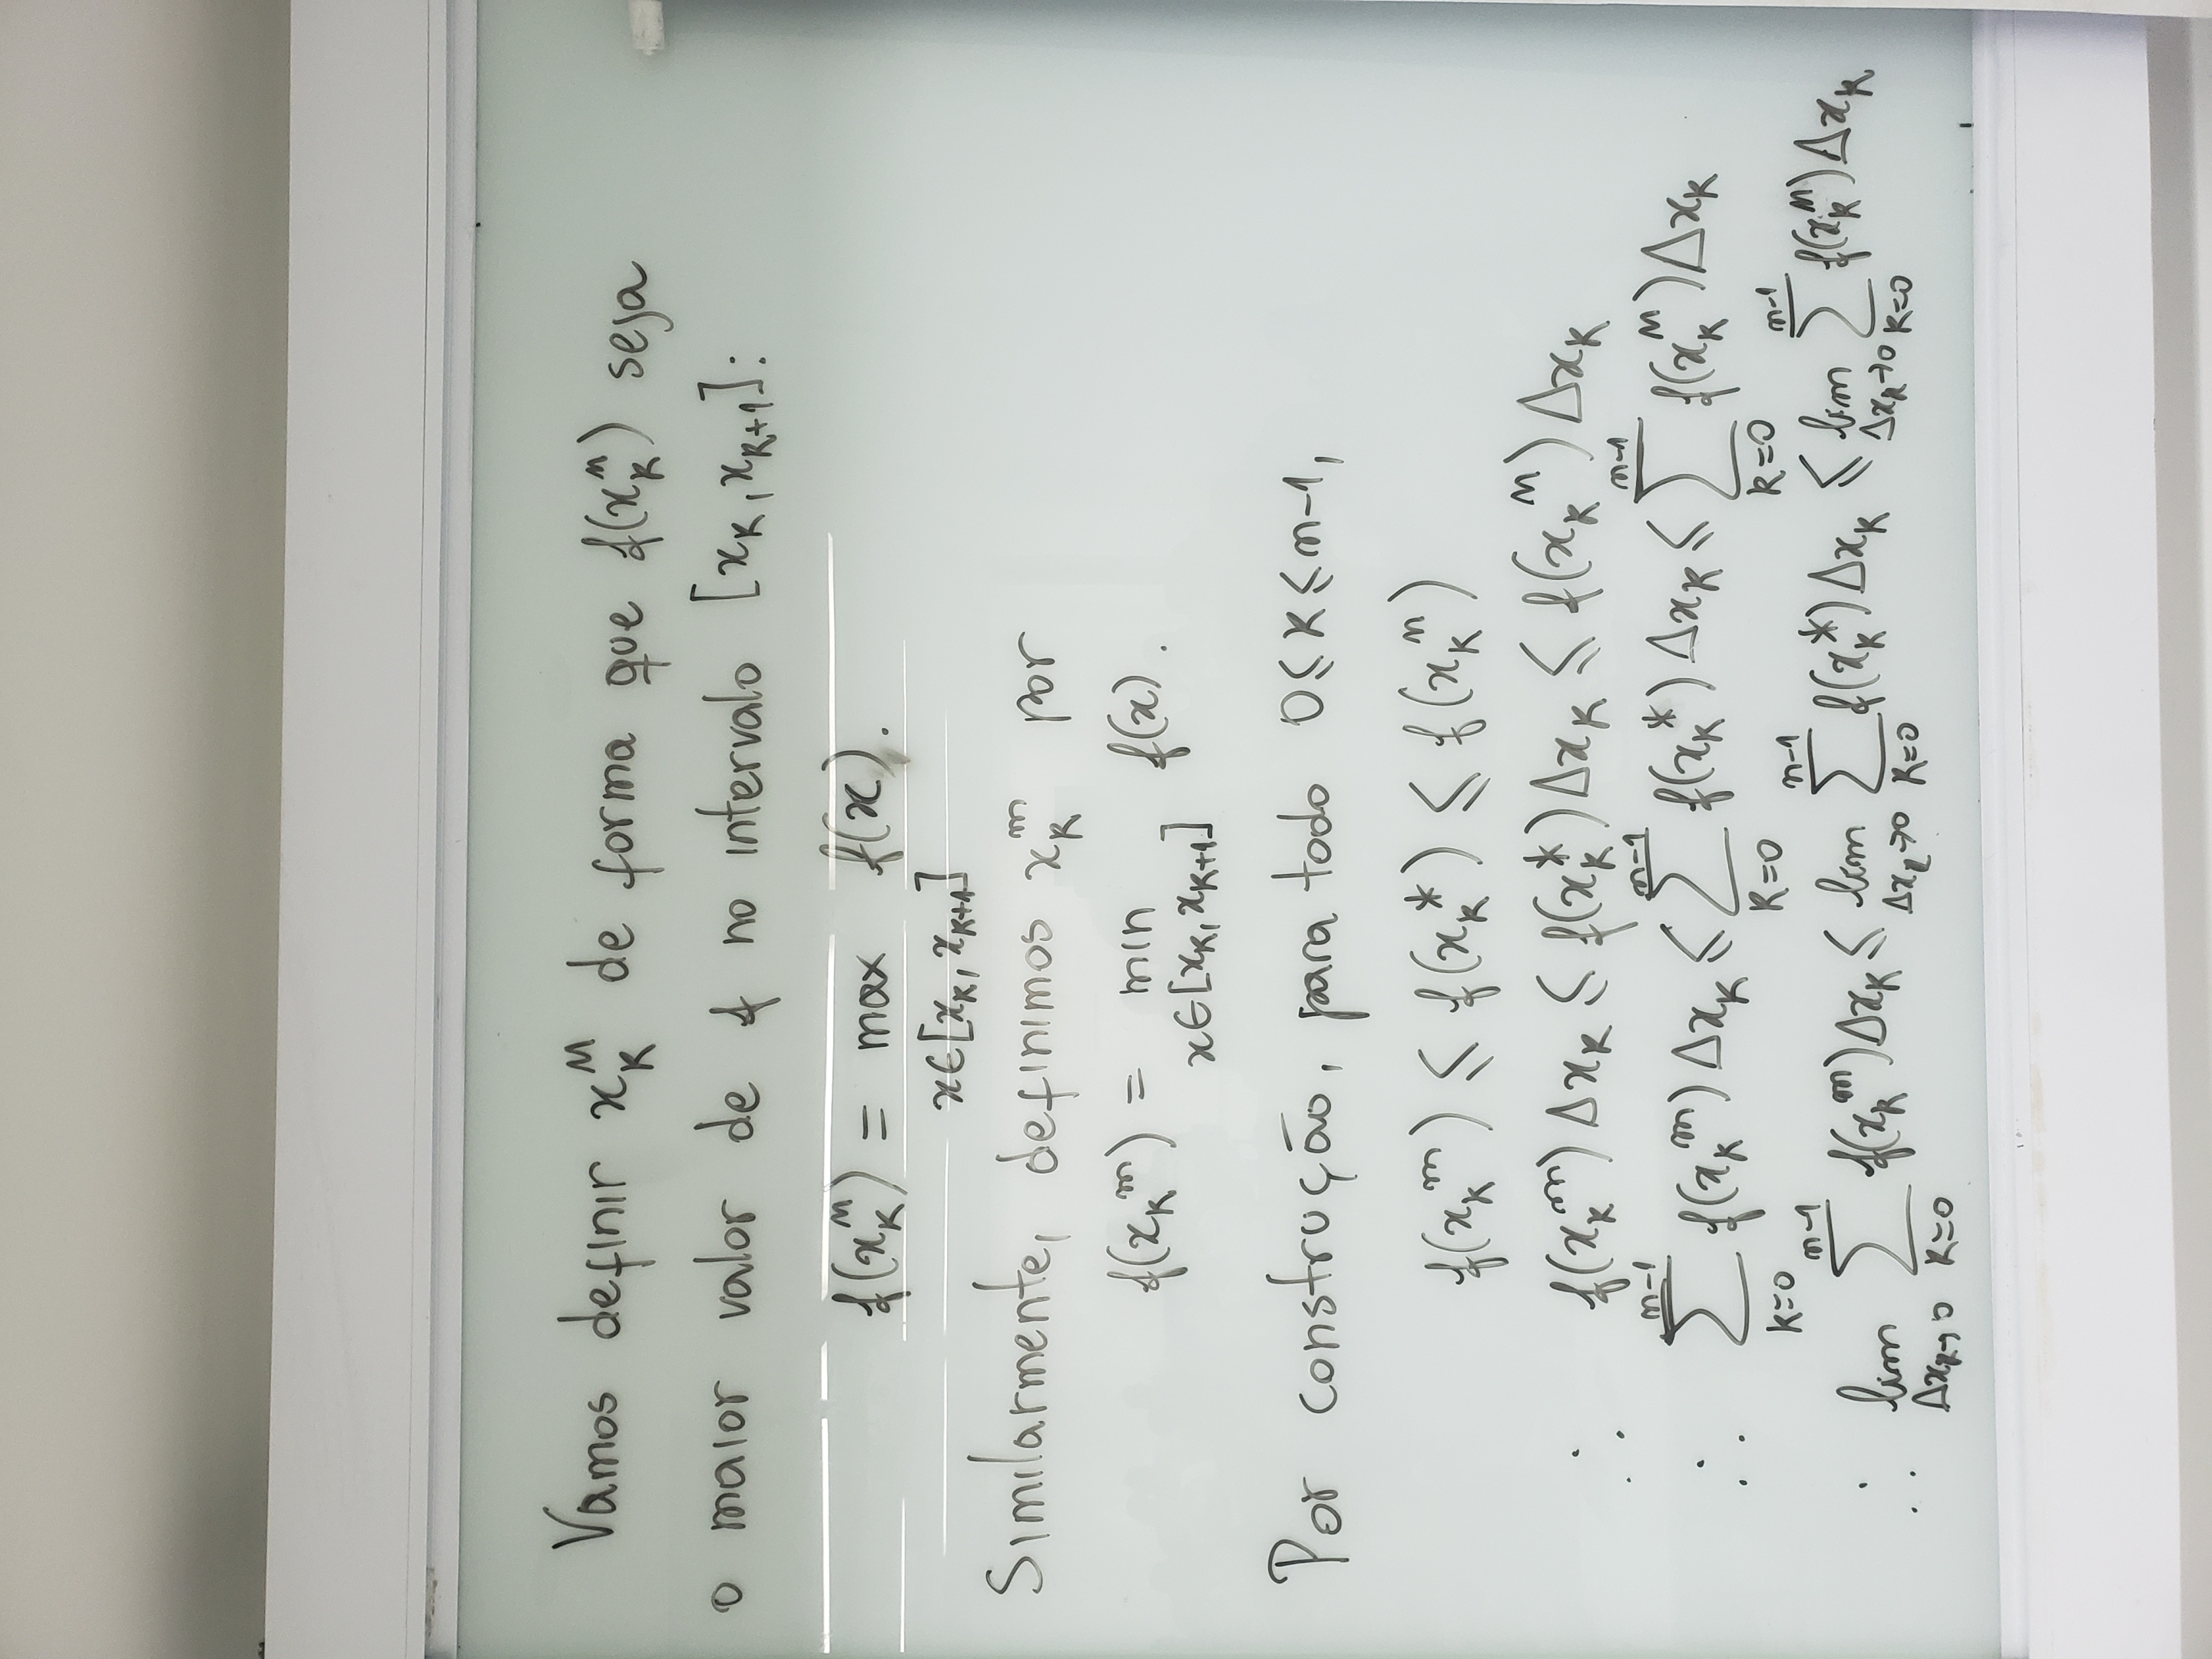 Vamos definir x_K^M de forma que f(x_K^M) seja
o maior valor de f no intervalo [x_K, x_{K+1}]:
f(x_K^M) = max f(x).
x∈[x_K, x_{K+1}]
Similarmente, definimos x_K^m por
f(x_K^m) = min f(x).
x∈[x_K, x_{K+1}]
Por construção, para todo 0≤K≤n-1,
f(x_K^m) ≤ f(x_K^*) ≤ f(x_K^M)
∴ f(x_K^m) Δx_K ≤ f(x_K^*) Δx_K ≤ f(x_K^M) Δx_K
∴ ∑_{K=0}^{n-1} f(x_K^m) Δx_K ≤ ∑_{K=0}^{n-1} f(x_K^*) Δx_K ≤ ∑_{K=0}^{n-1} f(x_K^M) Δx_K
∴ lim_{Δx_K→0} ∑_{K=0}^{n-1} f(x_K^m) Δx_K ≤ lim_{Δx_K→0} ∑_{K=0}^{n-1} f(x_K^*) Δx_K ≤ lim_{Δx_K→0} ∑_{K=0}^{n-1} f(x_K^M) Δx_K